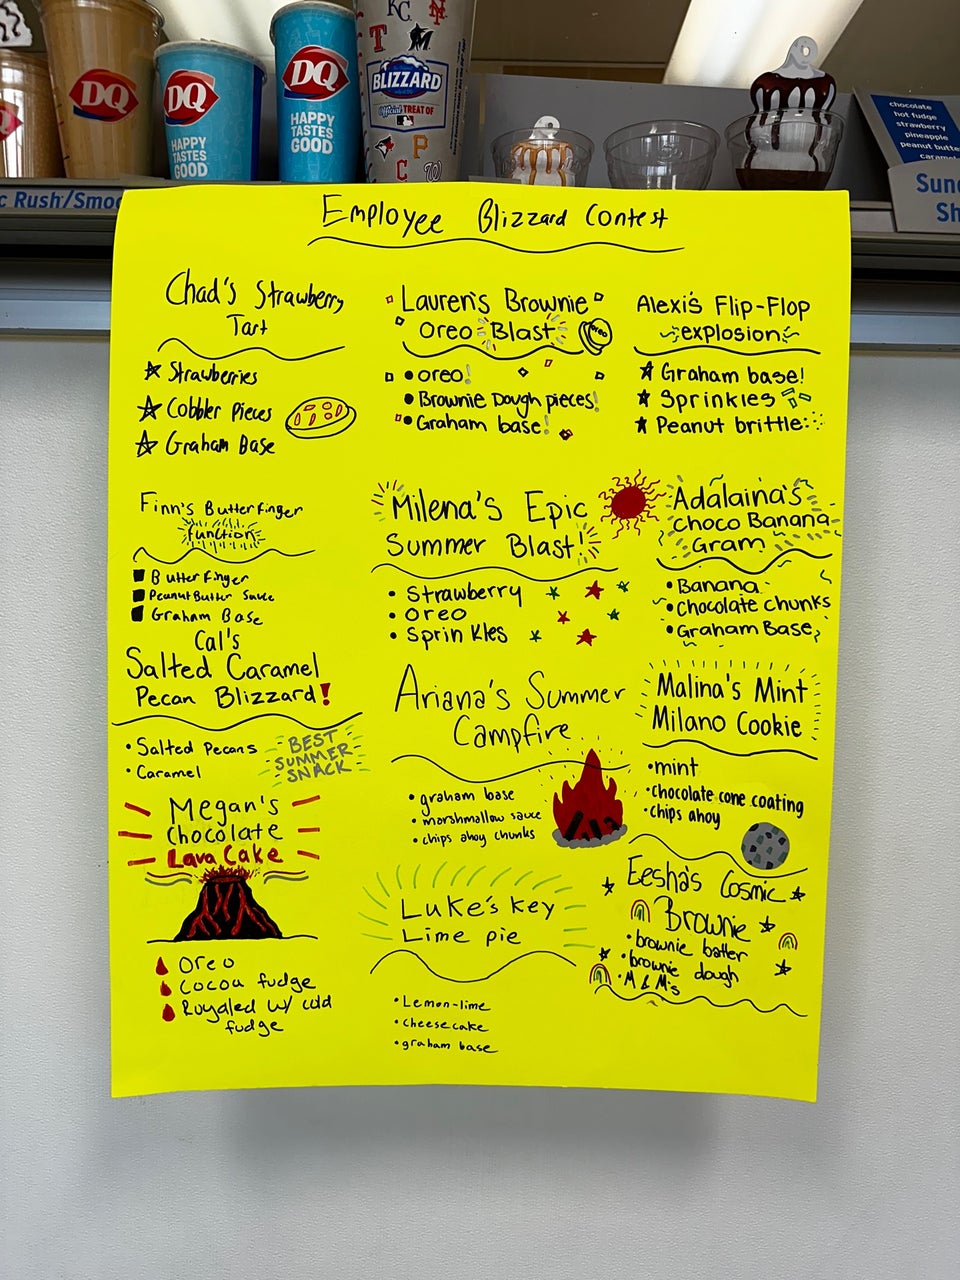 KC
DQ
DQ
HAPPY
TASTES
GOOD
DQ
HAPPY
TASTES
GOOD
T
BLIZZARD
Official TREAT OF
P
C
W
chocolate
hot fudge
strawberry
pineapple
peanut butte
caramel
c Rush/Smoo
Sun
Sh
Employee Blizzard Contest
Chad's Strawberry
Tart
Strawberries
Cobbler Pieces
Graham Base
Lauren's Brownie
Oreo Blast
oreo
oreo!
Brownie Dough pieces!
Graham base!
Alexi's Flip-Flop
explosion
Graham base!
Sprinkles
Peanut brittle
Finn's Butterfinger
function
Butterfinger
Peanut Butter Sauce
Graham Base
Milena's Epic
Summer Blast!
Strawberry
Oreo
Sprinkles
Adalaina's
Choco Banana
Gram
Banana
Chocolate chunks
Graham Base
Cal's
Salted Caramel
Pecan Blizzard!
Salted Pecans
Caramel
BEST
SUMMER
SNACK
Ariana's Summer
Campfire
graham base
marshmallow sauce
chips ahoy chunks
Malina's Mint
Milano Cookie
mint
chocolate cone coating
chips ahoy
Megan's
Chocolate
Lava Cake
Oreo
Cocoa fudge
Royaled w/ cold
fudge
Luke's Key
Lime pie
Lemon-lime
cheesecake
graham base
Eesha's Cosmic
Brownie
brownie batter
brownie dough
M & M's